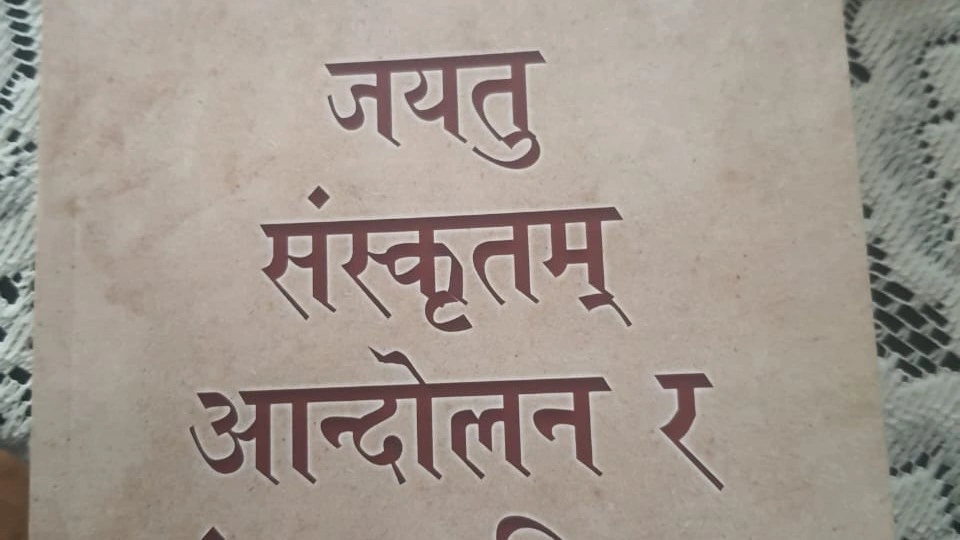 जयतु
संस्कृतम्
आन्दोलन र